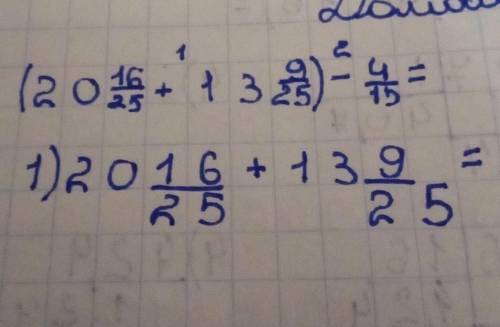 (20 16/25 +¹ 13 9/25) -² 4/15 =
1) 20 16/25 + 13 9/25 =